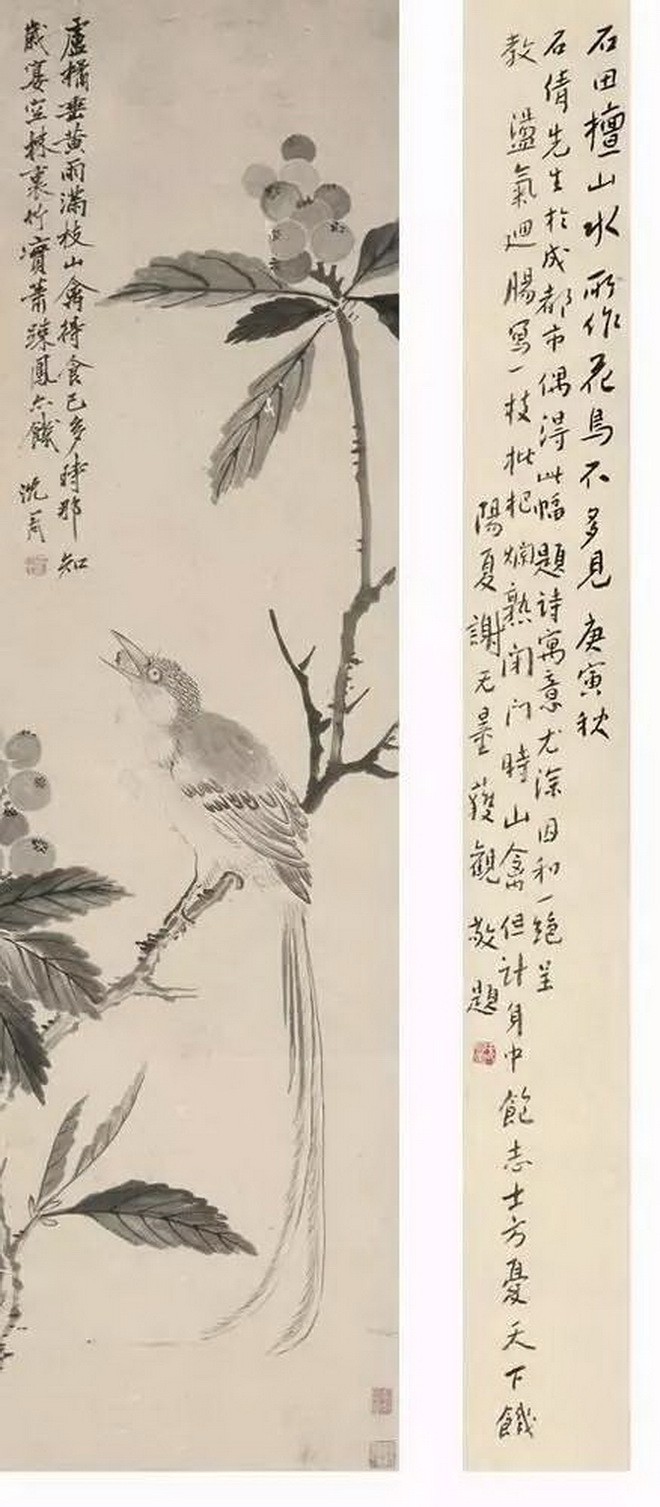 石田檀山水所作花鳥不多見庚寅秋
石倩先生於成都市偶得此幅題詩寓意尤深因和一絕呈
教 盪氣迴腸寫一枝枇杷爛熟閉門時山禽但計身中飽志士方憂天下饑
陽夏謝无量獲觀敬題
盧橘垂黃雨滿枝山禽得食已多時那知
歲宴空林裏竹實蕭踈鳳亦饑 沈周